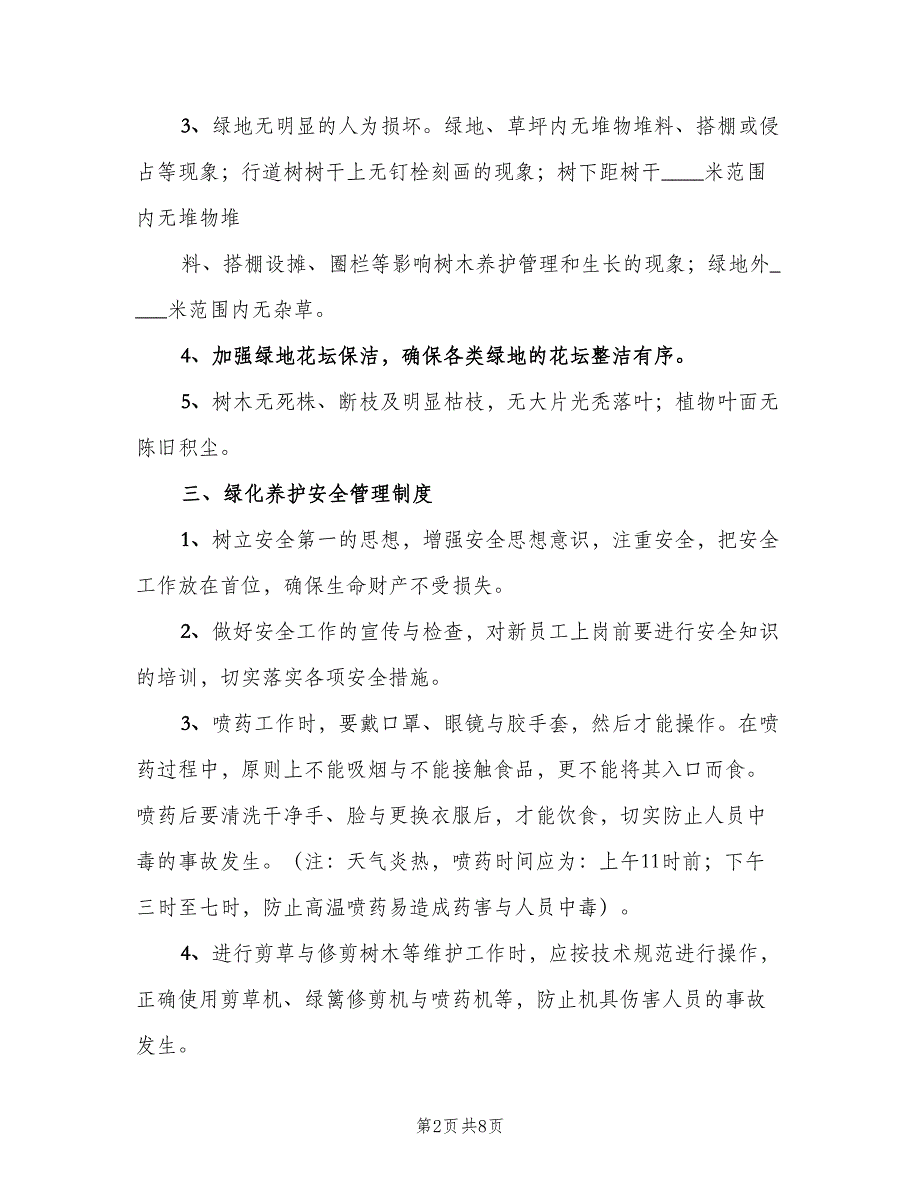 3、绿地无明显的人为损坏。绿地、草坪内无堆物堆料、搭棚或侵
占等现象；行道树树干上无钉栓刻画的现象；树下距树干____米范围
内无堆物堆
料、搭棚设摊、圈栏等影响树木养护管理和生长的现象；绿地外_
___米范围内无杂草。
4、加强绿地花坛保洁，确保各类绿地的花坛整洁有序。
5、树木无死株、断枝及明显枯枝，无大片光秃落叶；植物叶面无
陈旧积尘。
三、绿化养护安全管理制度
1、树立安全第一的思想，增强安全思想意识，注重安全，把安全
工作放在首位，确保生命财产不受损失。
2、做好安全工作的宣传与检查，对新员工上岗前要进行安全知识
的培训，切实落实各项安全措施。
3、喷药工作时，要戴口罩、眼镜与胶手套，然后才能操作。在喷
药过程中，原则上不能吸烟与不能接触食品，更不能将其入口而食。
喷药后要清洗干净手、脸与更换衣服后，才能饮食，切实防止人员中
毒的事故发生。（注：天气炎热，喷药时间应为：上午11时前；下午
三时至七时，防止高温喷药易造成药害与人员中毒）。
4、进行剪草与修剪树木等维护工作时，应按技术规范进行操作，
正确使用剪草机、绿篱修剪机与喷药机等，防止机具伤害人员的事故
发生。
第2页 共8页